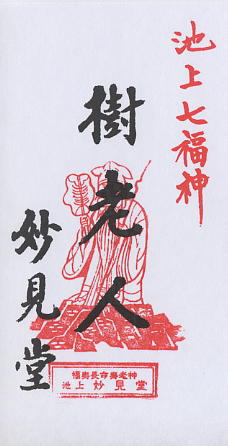 池上七福神
樹老人
妙見堂
福壽長命壽老神
池上 妙見堂